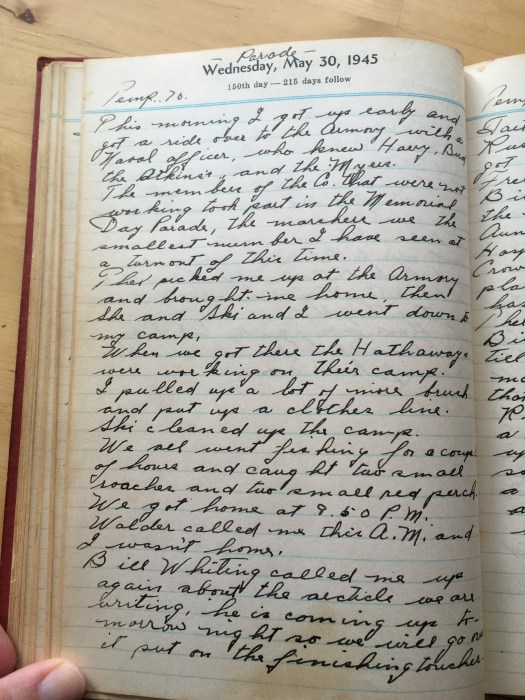 – Parade –
Wednesday, May 30, 1945
150th day — 215 days follow
Temp. 70.
This morning I got up early and
got a ride over to the Armory with a
Naval officer, who knew Hary, Bud
the Atkins, and the Myers.
The members of the Co. that were not
working took part in the Memorial
Day Parade, the marchers we the
smallest number I have seen at
a turnout of this time.
Phel picked me up at the Armory
and brought me home, then
She and Ski and I went down to
my camp.
When we got there the Hathaways
were working on their camp.
I pulled up a lot of more brush
and put up a clothes line.
Ski cleaned up the camp.
We all went fishing for a coup
of hours and caught two small
roaches and two small red perch.
We got home at 9.50 P.M.
Walder called me this A.M. and
I wasn't home.
Bill Whiting called me up
again about the article we are
writing, he is coming up to-
morrow night so we will go
it put on the finishing touches